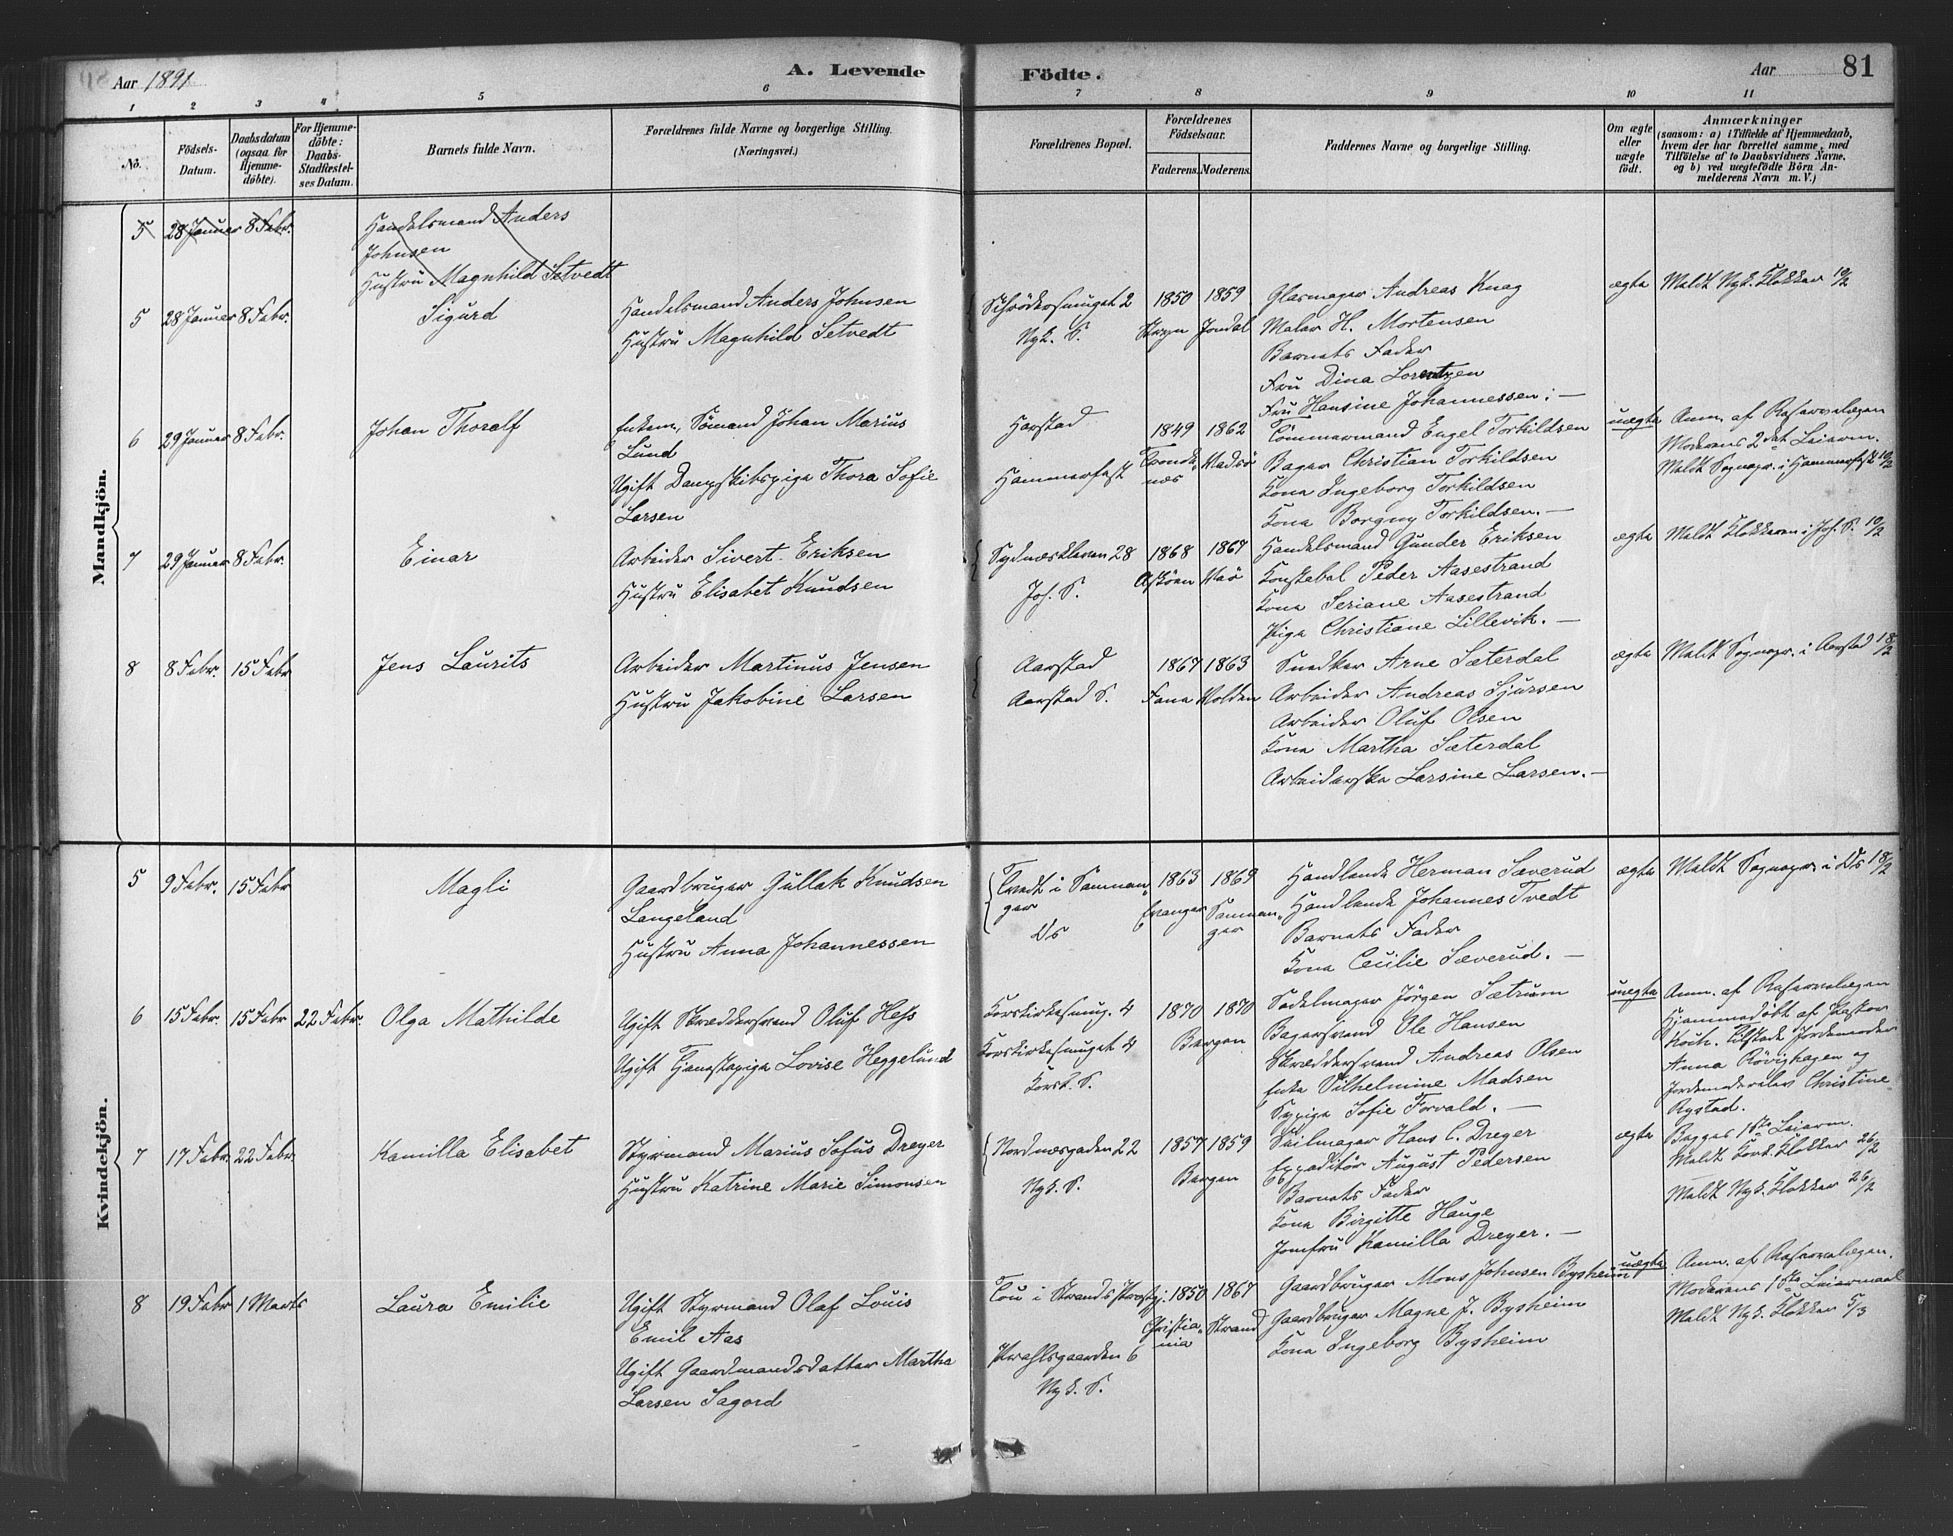 Aar 1891
A. Levende
Födte.
Aar
81
1 2 3 4 5 6 7 8 9 10 11
No.
Födsels-
Datum.
Daabsdatum
(ogsaa for
Hjemme-
döbte).
For Hjemme-
döbte:
Daabs-
Stadfæstel-
ses Datum.
Barnets fulde Navn.
Forældrenes fulde Navne og borgerlige Stilling.
(Næringsvei.)
Forældrenes Bopæl.
Forældrenes
Födselsaar.
Faderens. Moderens.
Faddernes Navne og borgerlige Stilling.
Om ægte
eller
uægte
födt.
Anmærkninger
(saasom: a) i Tilfælde af Hjemmedaab,
hvem der har forrettet samme, med
Tilföielse af to Daabsvidners Navne,
og b) ved uægtefödte Börn An-
melderens Navn m. V.)
Mandkjön.
5 28 Januar 8 Febr.
Handelsmand Anders
Johnsen
Hustru Magnhild Setvedt
5 28 Januar 8 Febr.
Sigurd
Handelsmand Anders Johnsen
Hustru Magnhild Setvedt
Schrödersmuget 2
Nyk. S.
1850 1859
Jondal
Glasmager Andreas Knag
Maler H. Mortensen
Barnets Fader
Fru Dina Lorentzen
Fru Hansine Johannessen; —
ægte
Meldt Nyk. Klokker 10/2
6 29 Januar 8 Febr.
Johan Thoralf
Enkem., Sömand Johan Marius
Lund
Ugift Dampskibspige Thora Sofie
Larsen
Harstad
Hammerfest
1849 1862
Tronde-
næs
Tömmermand Engel Torkildsen
Bager Christian Torkildsen
Kone Ingeborg Torkildsen
Kone Borgny Torkildsen. —
uægte
Anm. af Reservelægen
Moderens 2det Leierm.
Meldt Sognepr. i Hammerfest 10/2
7 29 Januar 8 Febr.
Einar
Arbeider Sivert Eriksen
Hustru Elisabet Knudsen
Sydneskleven 28
Joh. S.
1868 1867
Asköen
Handelsmand Gunder Eriksen
Konstabel Peder Aasestrand
Kone Seriane Aasestrand
Pige Christiane Lillevik. —
ægte
Meldt Klokkeren i Joh. S. 10/2
8 8 Febr. 15 Febr
Jens Laurits
Arbeider Martinus Jensen
Hustru Jakobine Larsen
Aarstad
Aarstad S.
1867 1863
Fana Holden
Snedker Arne Sæterdal
Arbeider Andreas Sjursen
Arbeider Oluf Olsen
Kone Martha Sæterdal
Arbeiderske Larsine Larsen. —
ægte
Meldt Sognepr. i Aarstad 18/2
Kvindekjön.
5 9 Febr. 15 Febr
Magli
Gaardbruger Gullak Knudsen
Langeland
Hustru Anna Johannessen
Tvedt i Samnan-
ger
Os
1863 1869
Evanger Samnan-
ger
Handlende Herman Sæverud
Handlende Johannes Tvedt
Barnets Fader
Kone Cecilie Sæverud. —
ægte
Meldt Sognepr. i Os 18/2
6 15 Febr. 15 Febr 22 Febr.
Olga Mathilde
Ugift Skræddersvend Oluf Hess
Ugift Tjenestepige Lovise Heggelund
Korskirkesmug. 4
Korskirkesmuget 4
Korsk. S.
1870 1870
Bergen
Sadelmager Jörgen Sætrum
Bagersvend Ole Hansen
Skræddersvend Andreas Olsen
Enke Vilhelmine Madsen
Sypige Sofie Forvald. —
uægte
Anm. af Reservelægen
Hjemmedöbt af Pastor
Koch. Tilstede Jordemoder
Anna Rövighagen og
Jordemoderelev Christine
Rystad.
Begges 1ste Leierm.
Meldt Kors. Klokker 26/2
7 17 Febr. 22 Febr.
Kamilla Elisabet
Styrmand Marius Sofus Dreyer
Hustru Katrine Marie Simonsen
Nordnæsgaden 22
Nyk. S.
1857 1859
Bergen
Seilmager Hans C. Dreyer
Expeditör August Pedersen
Barnets Fader
Kone Birgitte Hauge
Jomfru Kamilla Dreyer. —
ægte
Meldt Nyk. Klokker 26/2
8 19 Febr 1 Marts
Laura Emilie
Ugift Styrmand Olaf Louis
Emil Aas
Ugift Gaardmandsdatter Martha
Larsen Sagord
Tou i Strands Præstgj.
Prahlsgaarden 6
Nyk. S.
1850 1867
Christia-
nia
Strand
Gaardbruger Mons Johnsen Bysheim
Gaardbruger Magne J. Bysheim
Kone Ingeborg Bysheim
uægte
Anm. af Reservelægen.
Moderens 1ste Leiermaal
Meldt Nyk. Klokker 5/3